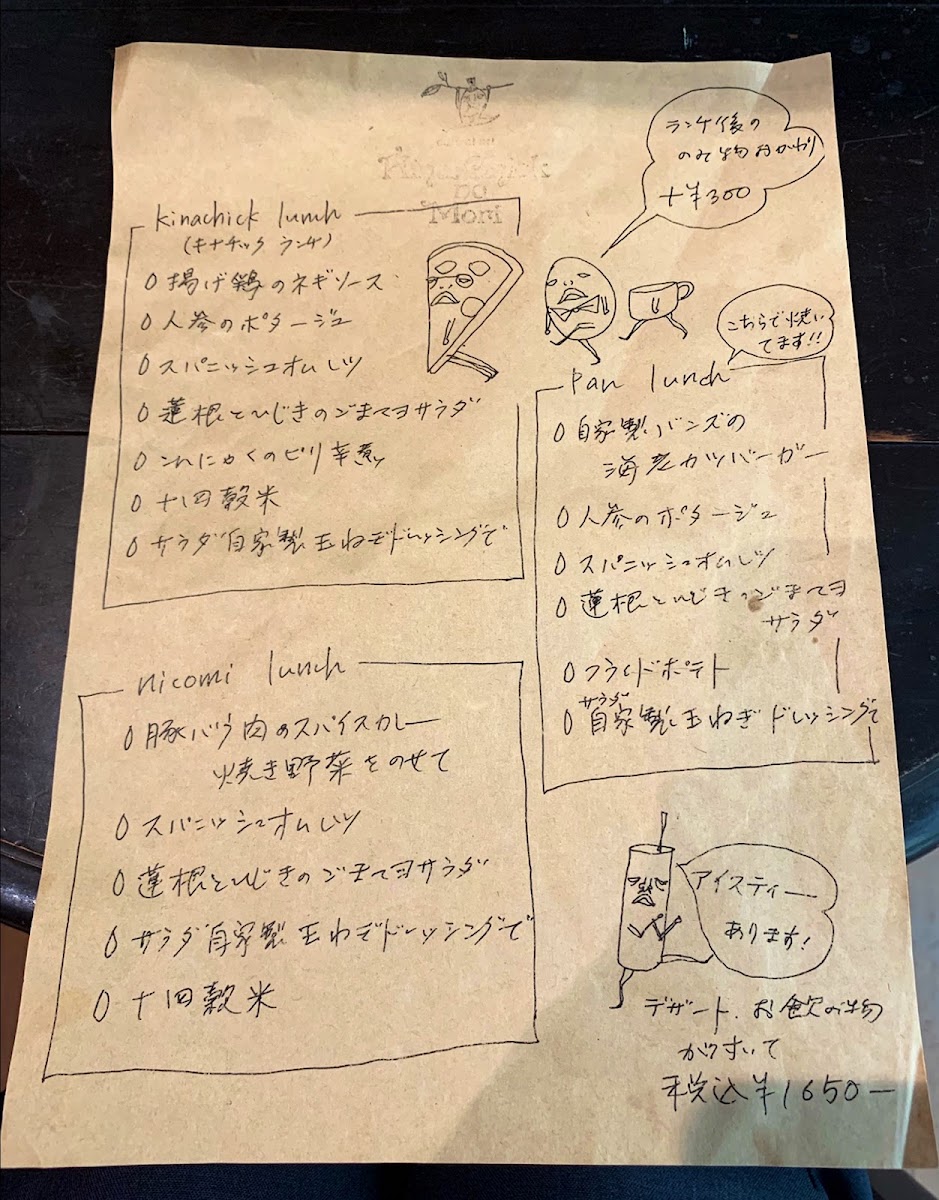 ランチ後の
のみ物おかわり
+¥300
kinachick lunch
(キナチック ランチ)
○揚げ鶏のネギソース
○人参のポタージュ
○スパニッシュオムレツ
○蓮根とひじきのごまマヨサラダ
○こんにゃくのピリ辛煮
○十四穀米
○サラダ自家製玉ねぎドレッシングで
こちらで焼い
てます!!
Pan lunch
○自家製バンズの
海老カツバーガー
○人参のポタージュ
○スパニッシュオムレツ
○蓮根とひじきのごまマヨ
サラダ
○フライドポテト
サラダ
○自家製玉ねぎドレッシングで
nicomi lunch
○豚バラ肉のスパイスカレー
焼き野菜をのせて
○スパニッシュオムレツ
○蓮根とひじきのごまマヨサラダ
○サラダ自家製玉ねぎドレッシングで
○十四穀米
アイスティー
あります!
デザート、お飲み物
がついて
税込¥1650ー